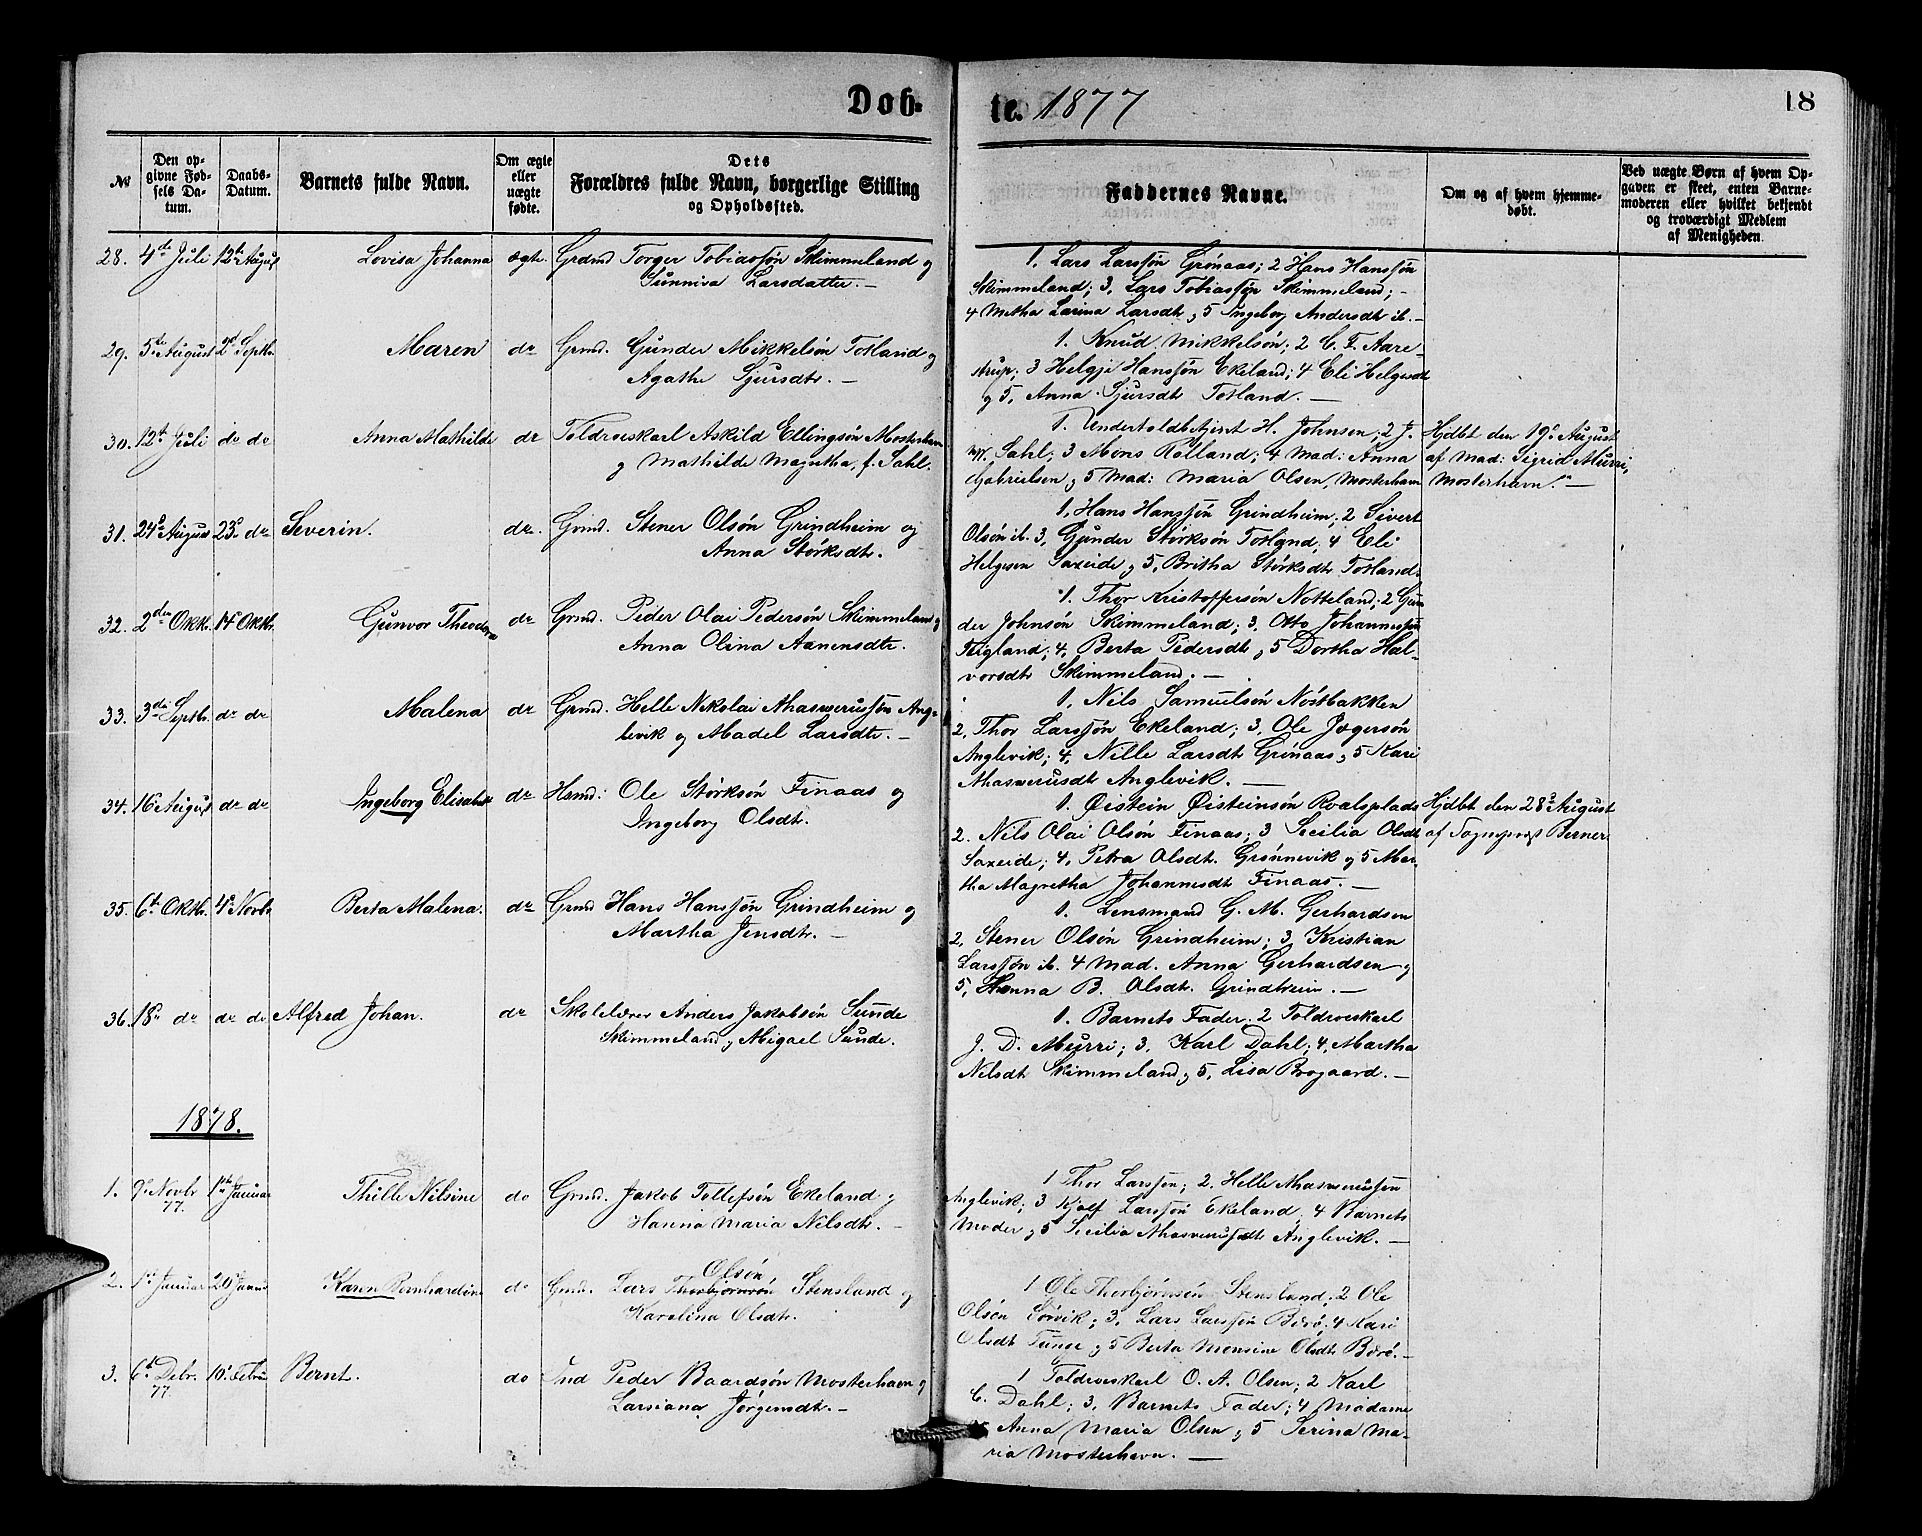 Døb-
te. 1877
18
№
Den op-
givne Fød-
sels Da-
tum.
Daabs-
Datum.
Barnets fulde Navn.
Om ægte
eller
uægte
fødte.
Dets
Forældres fulde Navn, borgerlige Stilling
og Opholdssted.
Faddernes Navne.
Om og af hvem hjemme-
døbt.
Ved uægte Børn af hvem Op-
gaven er skeet, enten Barne-
moderen eller hvilket bekjendt
og troværdigt Medlem
af Menigheden.
28. 4de Juli 12te August Lovisa Johanna ægte. Grdmd Torger Tobiassøn Skimmeland og
Sunniva Larsdatter. —
1. Lars Larssøn Grønaas; 2 Hans Hanssøn
Skimmeland; 3. Lars Tobiassøn Skimmeland; -
4 Metha Larina Larsdt. og 5 Ingeborg Andersdt ib. —
29. 5te August 2d Septbr. Maren do Grmd. Gunder Mikkelsøn Totland og
Agathe Sjursdtr. —
1. Knud Mikkelsøn; 2 C. F. Aare-
strup; 3 Helgje Hanssøn Ekeland; 4 Eli Helgesdt
og 5. Anna Sjursdt Totland. —
30. 12te Juli do do Anna Mathilde do Toldroerskarl Askild Ellingsøn Mosterhavn
og Mathilde Magretha f. Dahl.
1. Undertoldbetjent H. Johnsen; 2 J.
W. Dahl; 3 Mons Røtland; 4 Mad: Anna
Gabrielsen og 5 Mad: Maria Olsen, Mosterhavn
Hjdbt den 19de August
af Mad: Sigrid Murri,
Mosterhavn. —
31. 24de August 23de do Severin. do. Grmd. Stener Olsøn Grindheim og
Anna Størksdtr.
1. Hans Hanssøn Grindheim; 2 Sivert
Olsøn ib. 3. Gunder Størksøn Totland; 4 Eli
Helgesen Saxeide og 5. Britha Størksdtr Totland.
32. 2den Oktbr. 14 Oktbr. Gunvor Theodora do Grmd. Peder Olai Pedersøn Skimmeland og
Anna Olina Aanensdtr.
1. Thor Kristoffersøn Notteland; 2 Gun
der Johnsøn Skimmeland; 3. Otto Johannessøn
Teigland; 4. Berta Pedersdt og 5 Dortha Hal-
vorsdtr Skimmeland. —
33. 3die Septbr. do do Malena do Grmd. Helle Nikolai Ahasverussøn Ang-
levik og Madel Larsdtr. —
1. Nils Samuelsøn Nøstbakken
2. Thor Larssøn Ekeland; 3. Ole Jægersøn
Anglevik; 4. Nille Larsdt Grønaas og 5 Kari
Ahasverusdt Anglevik. —
34. 16de August do do Ingeborg Elisabet do Hsmd: Ole Størksøn Finaas og
Ingeborg Olsdt.
1. Øistein Øisteinsøn Roalsplads
2. Nils Olai Olsøn Finaas; 3 Secilia Olsdt
Saxeide; 4. Petra Olsdt. Grønnevik og 5 Mar-
tha Magretha Johannesdt Finaas. —
Hjdbt den 28de August
af Sognepræst Berner
35. 6te Oktbr. 4de Novbr Berta Malena. do Grmd Hans Hanssøn Grindheim og
Martha Jensdtr. —
1. Lensmand G. M. Gerhardsen
2. Stener Olsøn Grindheim; 3 Kristian
Larssøn ib. 4 Mad. Anna Gerhardsen og
5. Hanna B. Olsdt. Grindheim. —
36. 18de do do do Alfred Johan. do Skolelærer Anders Jakobsøn Sunde
Skimmeland og Abigael Sunde.
1. Barnets Fader; 2 Toldroerskarl
J. D. Murri; 3. Karl Dahl; 4. Martha
Nilsdt Skimmeland og 5. Lisa Brogaard. —
1878.
1. 9de Novbr 77. 1ste Januar Thille Nilsine do Grmd. Jakob Tollefsøn Ekeland og
Hanna Maria Nilsdtr. —
1 Thor Larssøn; 2. Helle Ahasverussøn
Anglevik; 3 Kjøl. Larssøn Ekeland; 4 Barnets
Moder og 5 Secilia Ahasverusdtr Anglevik. —
2. 1ste Januar 20 Januar Karen Bernhardine do Grmd. Lars Thorbjørnsøn Olsøn Stensland og
Karolina Olsdtr.
1 Ole Thorbjørnsøn Stensland; 2 Ole
Olsøn Sørvik; 3. Lars Larssøn Børø; 4 Kari
Olsdt Tunge og 5 Berta Monsine Olsdt Børø. —
3. 6te Debr. 77. 10de Febru Bernt. do Peder Baardsøn Mosterhavn og
Larsiana Jørgensdtr. —
1 Toldroerskarl O. A. Olsen; 2 Karl
C. Dahl; 3. Barnets Fader; 4 Madame
Anna Maria Olsen og 5 Serina Ma-
ria Mosterhavn. —